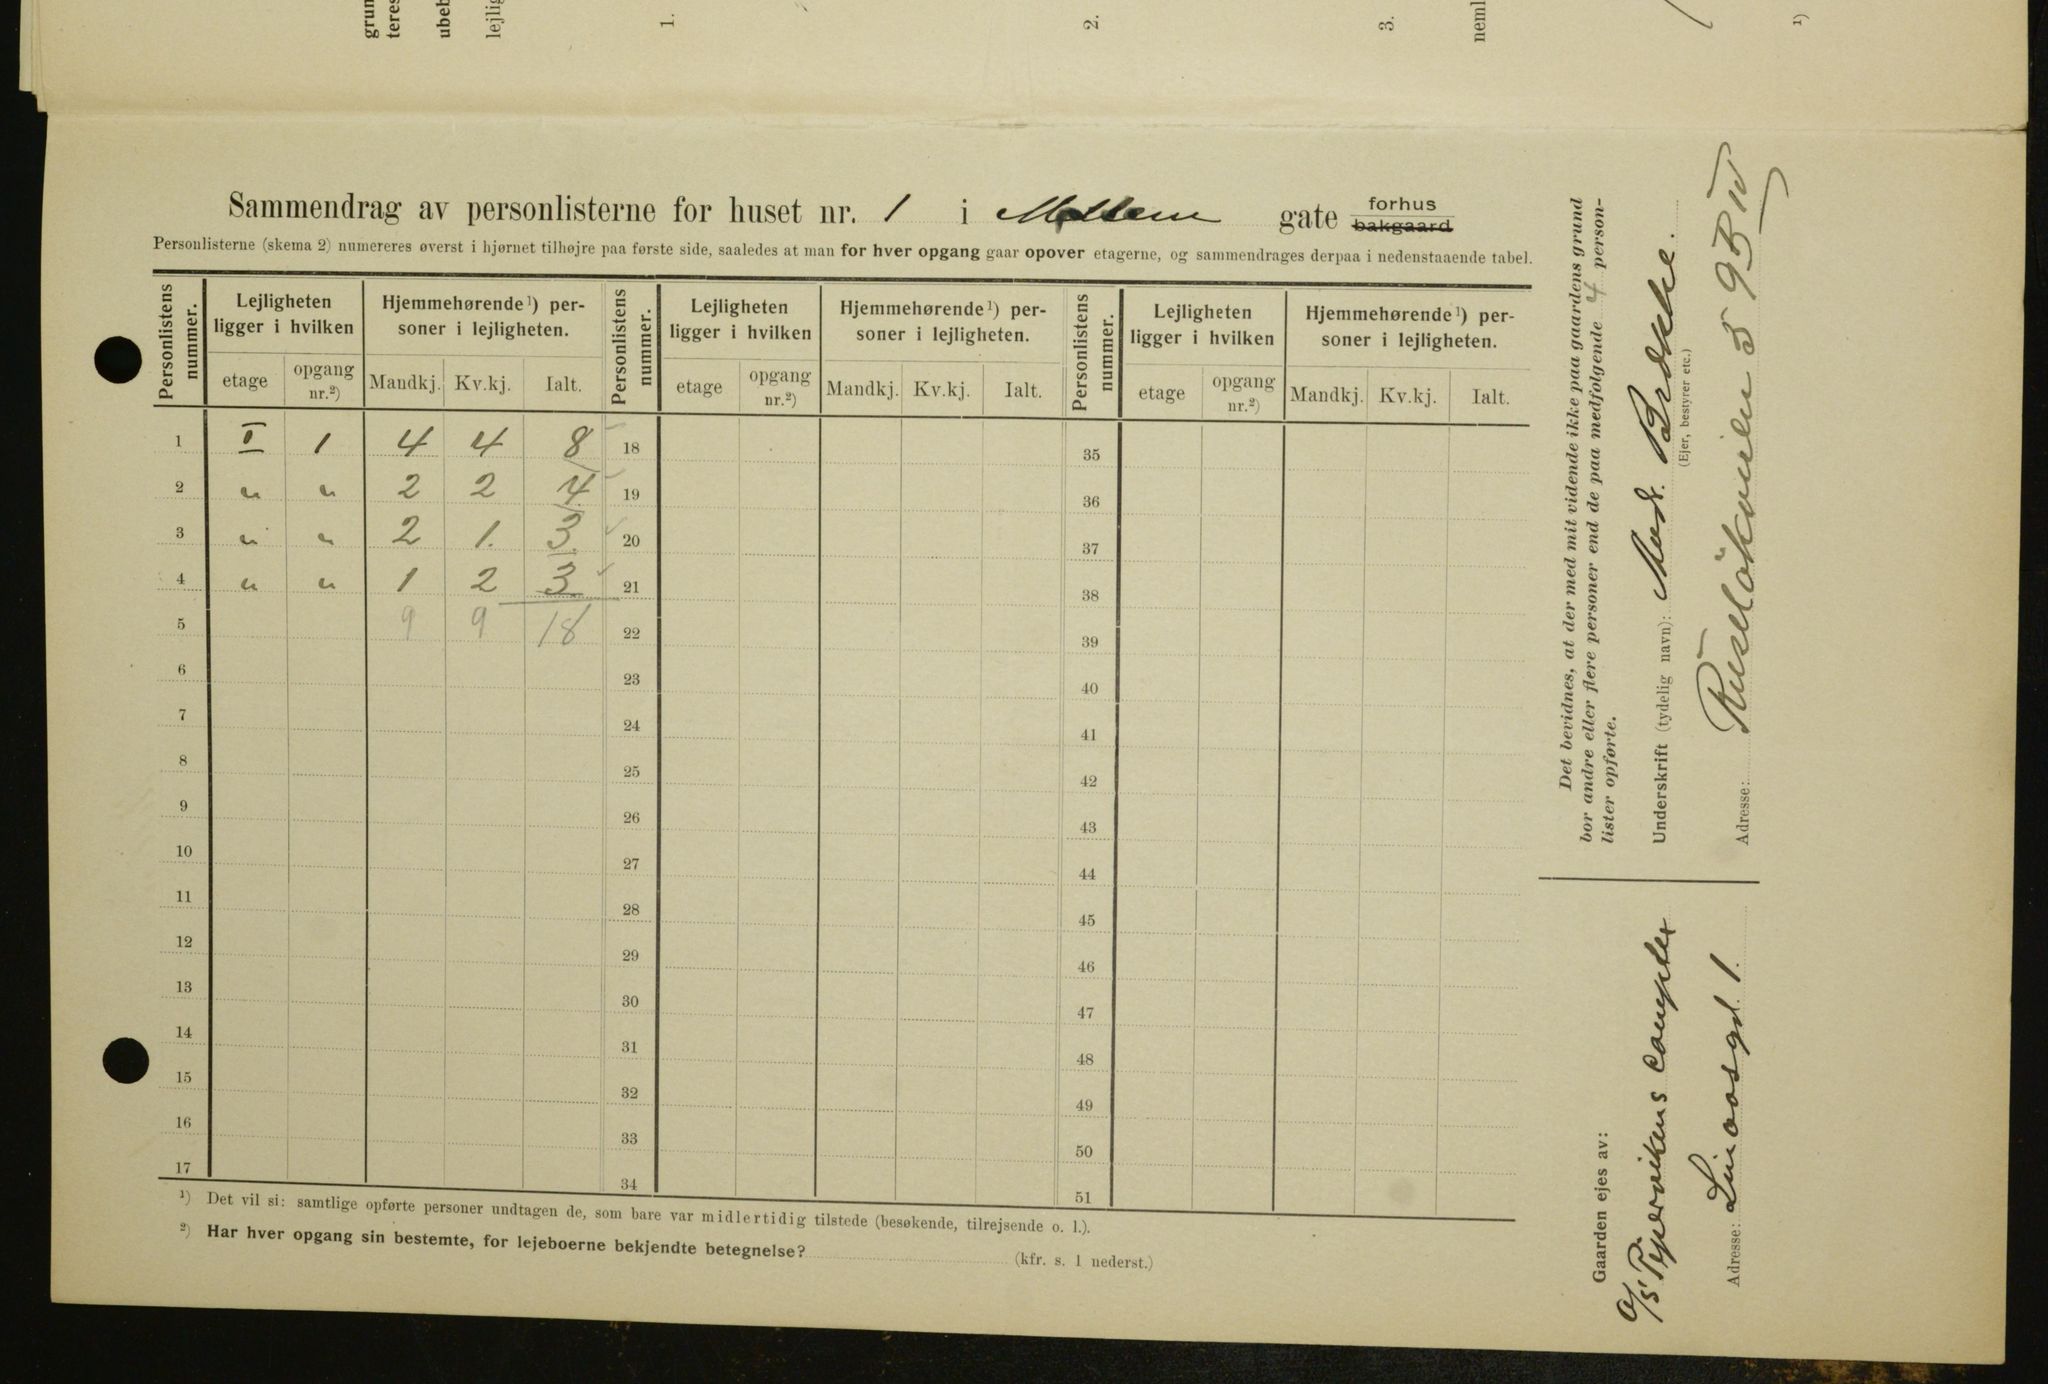 grun
teres
ubeb
lejlig
1.
2.
3.
neml
1)
Sammendrag av personlisterne for huset nr. 1 i Mellem gate forhus bakgaard
Personlisterne (skema 2) numereres øverst i hjørnet tilhøjre paa første side, saaledes at man for hver opgang gaar opover etagerne, og sammendrages derpaa i nedenstaaende tabel.
Personlistens nummer. Lejligheten ligger i hvilken Hjemmehørende¹) personer i lejligheten. Personlistens nummer. Lejligheten ligger i hvilken Hjemmehørende¹) personer i lejligheten. Personlistens nummer. Lejligheten ligger i hvilken Hjemmehørende¹) personer i lejligheten.
etage opgang nr.²) Mandkj. Kv.kj. Ialt. etage opgang nr.²) Mandkj. Kv.kj. Ialt. etage opgang nr.²) Mandkj. Kv.kj. Ialt.
1 II 1 4 4 8 18 35
2 " " 2 2 4 19 36
3 " " 2 1. 3 20 37
4 " " 1 2 3 21 38
5 9 9 18 22 39
6 23 40
7 24 41
8 25 42
9 26 43
10 27 44
11 28 45
12 29 46
13 30 47
14 31 48
15 32 49
16 33 50
17 34 51
¹) Det vil si: samtlige opførte personer undtagen de, som bare var midlertidig tilstede (besøkende, tilrejsende o. l.).
²) Har hver opgang sin bestemte, for lejeboerne bekjendte betegnelse? (kfr. s. 1 nederst.)
Det bevidnes, at der med mit vidende ikke paa gaardens grund
bor andre eller flere personer end de paa medfølgende 4 person-
lister opførte.
Underskrift (tydelig navn):
(Ejer, bestyrer etc.)
Adresse:
Gaarden ejes av:
A/S Pipervikens Complex
Adresse: Linaasgt. 1.